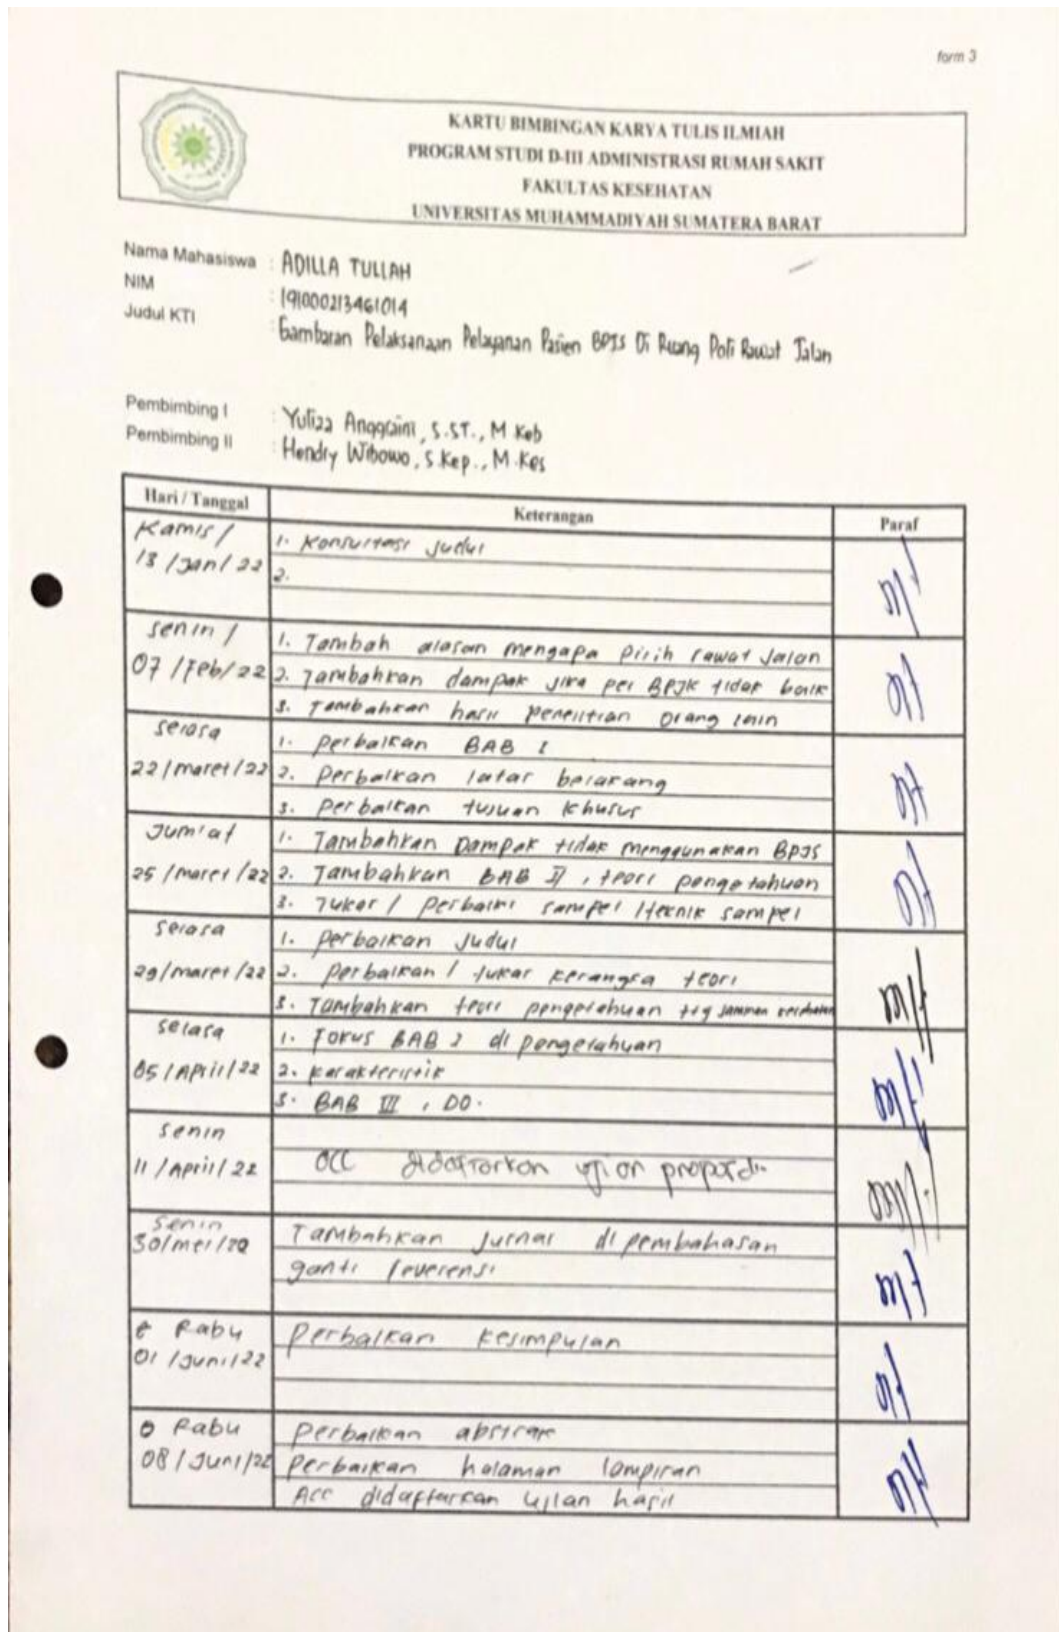 form 3
KARTU BIMBINGAN KARYA TULIS ILMIAH
PROGRAM STUDI D-III ADMINISTRASI RUMAH SAKIT
FAKULTAS KESEHATAN
UNIVERSITAS MUHAMMADIYAH SUMATERA BARAT
Nama Mahasiswa : ADILLA TULLAH
NIM : 191000213461014
Judul KTI : Gambaran Pelaksanaan Pelayanan Pasien BPJS Di Ruang Poli Rawat Jalan
Pembimbing I : Yuliza Anggraini, S.ST., M Keb
Pembimbing II : Hendry Wibowo, S.Kep., M.Kes
Hari / Tanggal Keterangan Paraf
Kamis / 1. Konsultasi judul
13 / Jan / 22 2.
Senin / 1. Tambah alasan mengapa pilih rawat jalan
07 / Feb / 22 2. Tambahkan dampak jika per BPJK tidak baik
3. Tambahkan hasil penelitian orang lain
Selasa 1. Perbaikan BAB I
22 / maret / 22 2. Perbaikan latar belakang
3. Perbaikan tujuan khusus
Jum'at 1. Tambahkan Dampak tidak menggunakan BPJS
25 / maret / 22 2. Tambahkan BAB II, teori pengetahuan
3. Tukar / perbaiki sampel / teknik sampel
Selasa 1. Perbaikan judul
29 / maret / 22 2. perbaikan / tukar kerangka teori
3. Tambahkan teori pengetahuan ttg jaminan kesehatan
Selasa 1. Fokus BAB 2 di pengetahuan
05 / April / 22 2. Karakteristik
3. BAB III, DO.
Senin
11 / April / 22 acc didaftarkan ujian proposal
Senin Tambahkan jurnal di pembahasan
30/mei/20 ganti reverensi
Rabu Perbaikan kesimpulan
01 / Juni / 22
Rabu Perbaikan abstrak
08 / Juni / 22 Perbaikan halaman lampiran
Acc didaftarkan ujian hasil